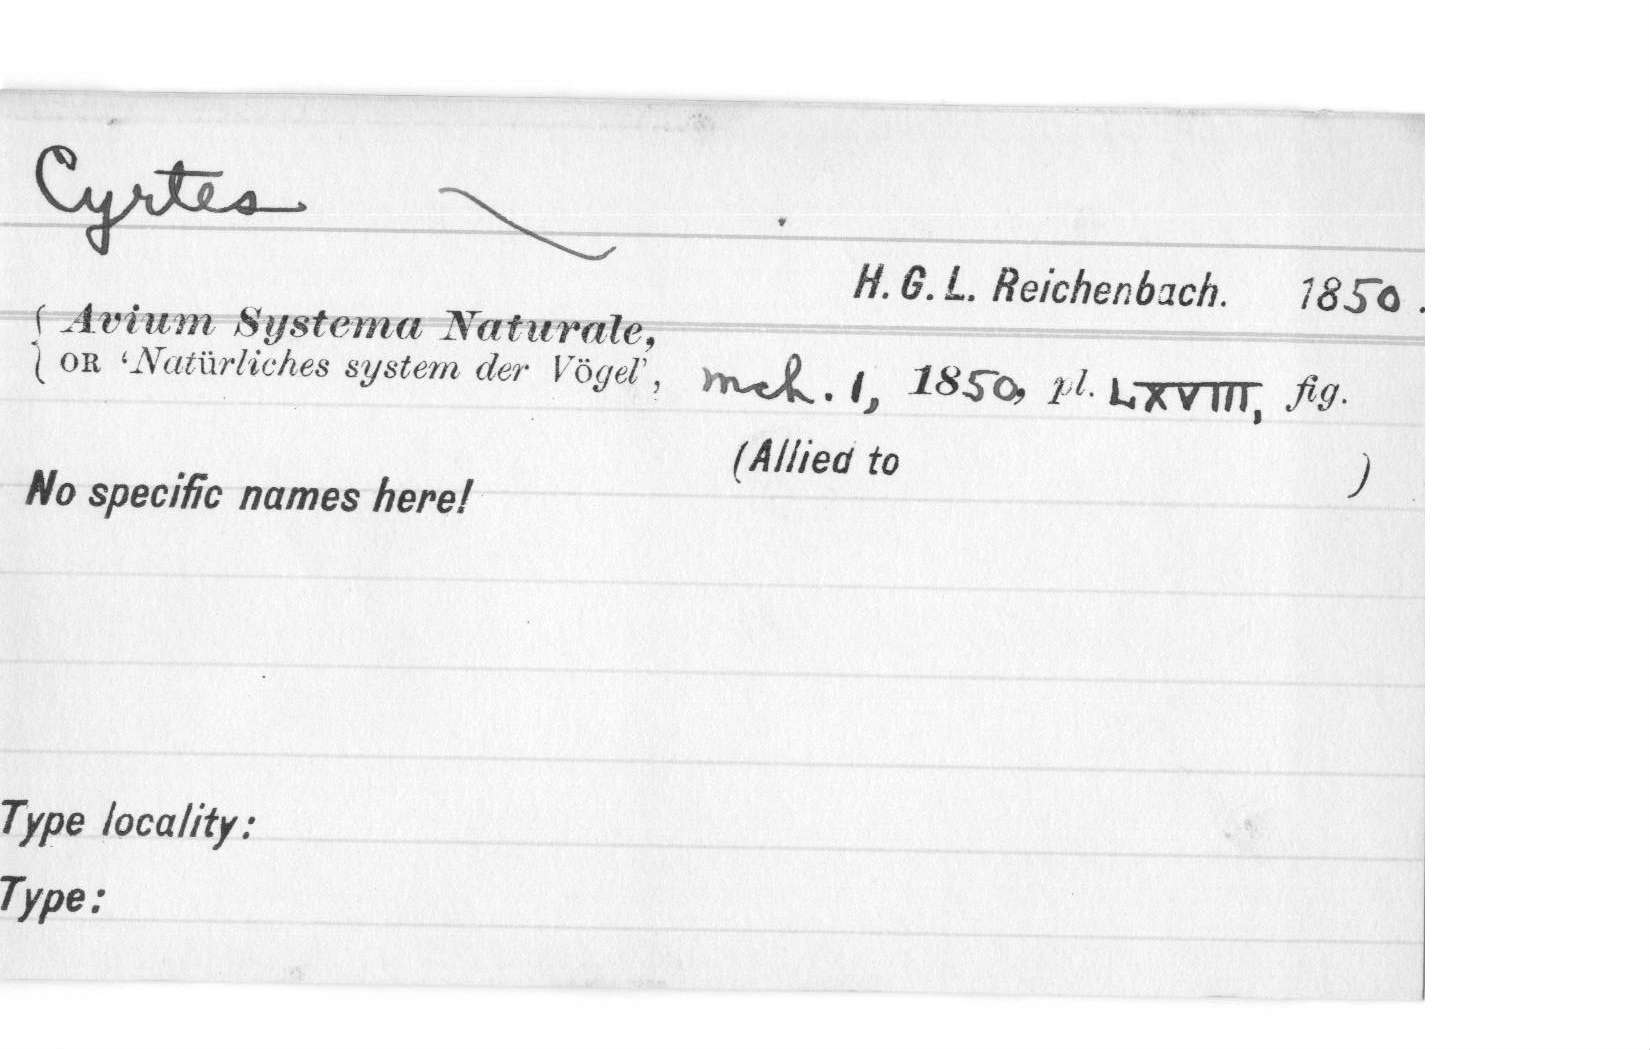 Cyrtes
H. G. L. Reichenbach. 1850.
Avium Systema Naturale,
OR ‘Natürliches system der Vögel’, mch. 1, 1850, pl. LXVIII, fig.
(Allied to )
No specific names here!
Type locality:
Type: